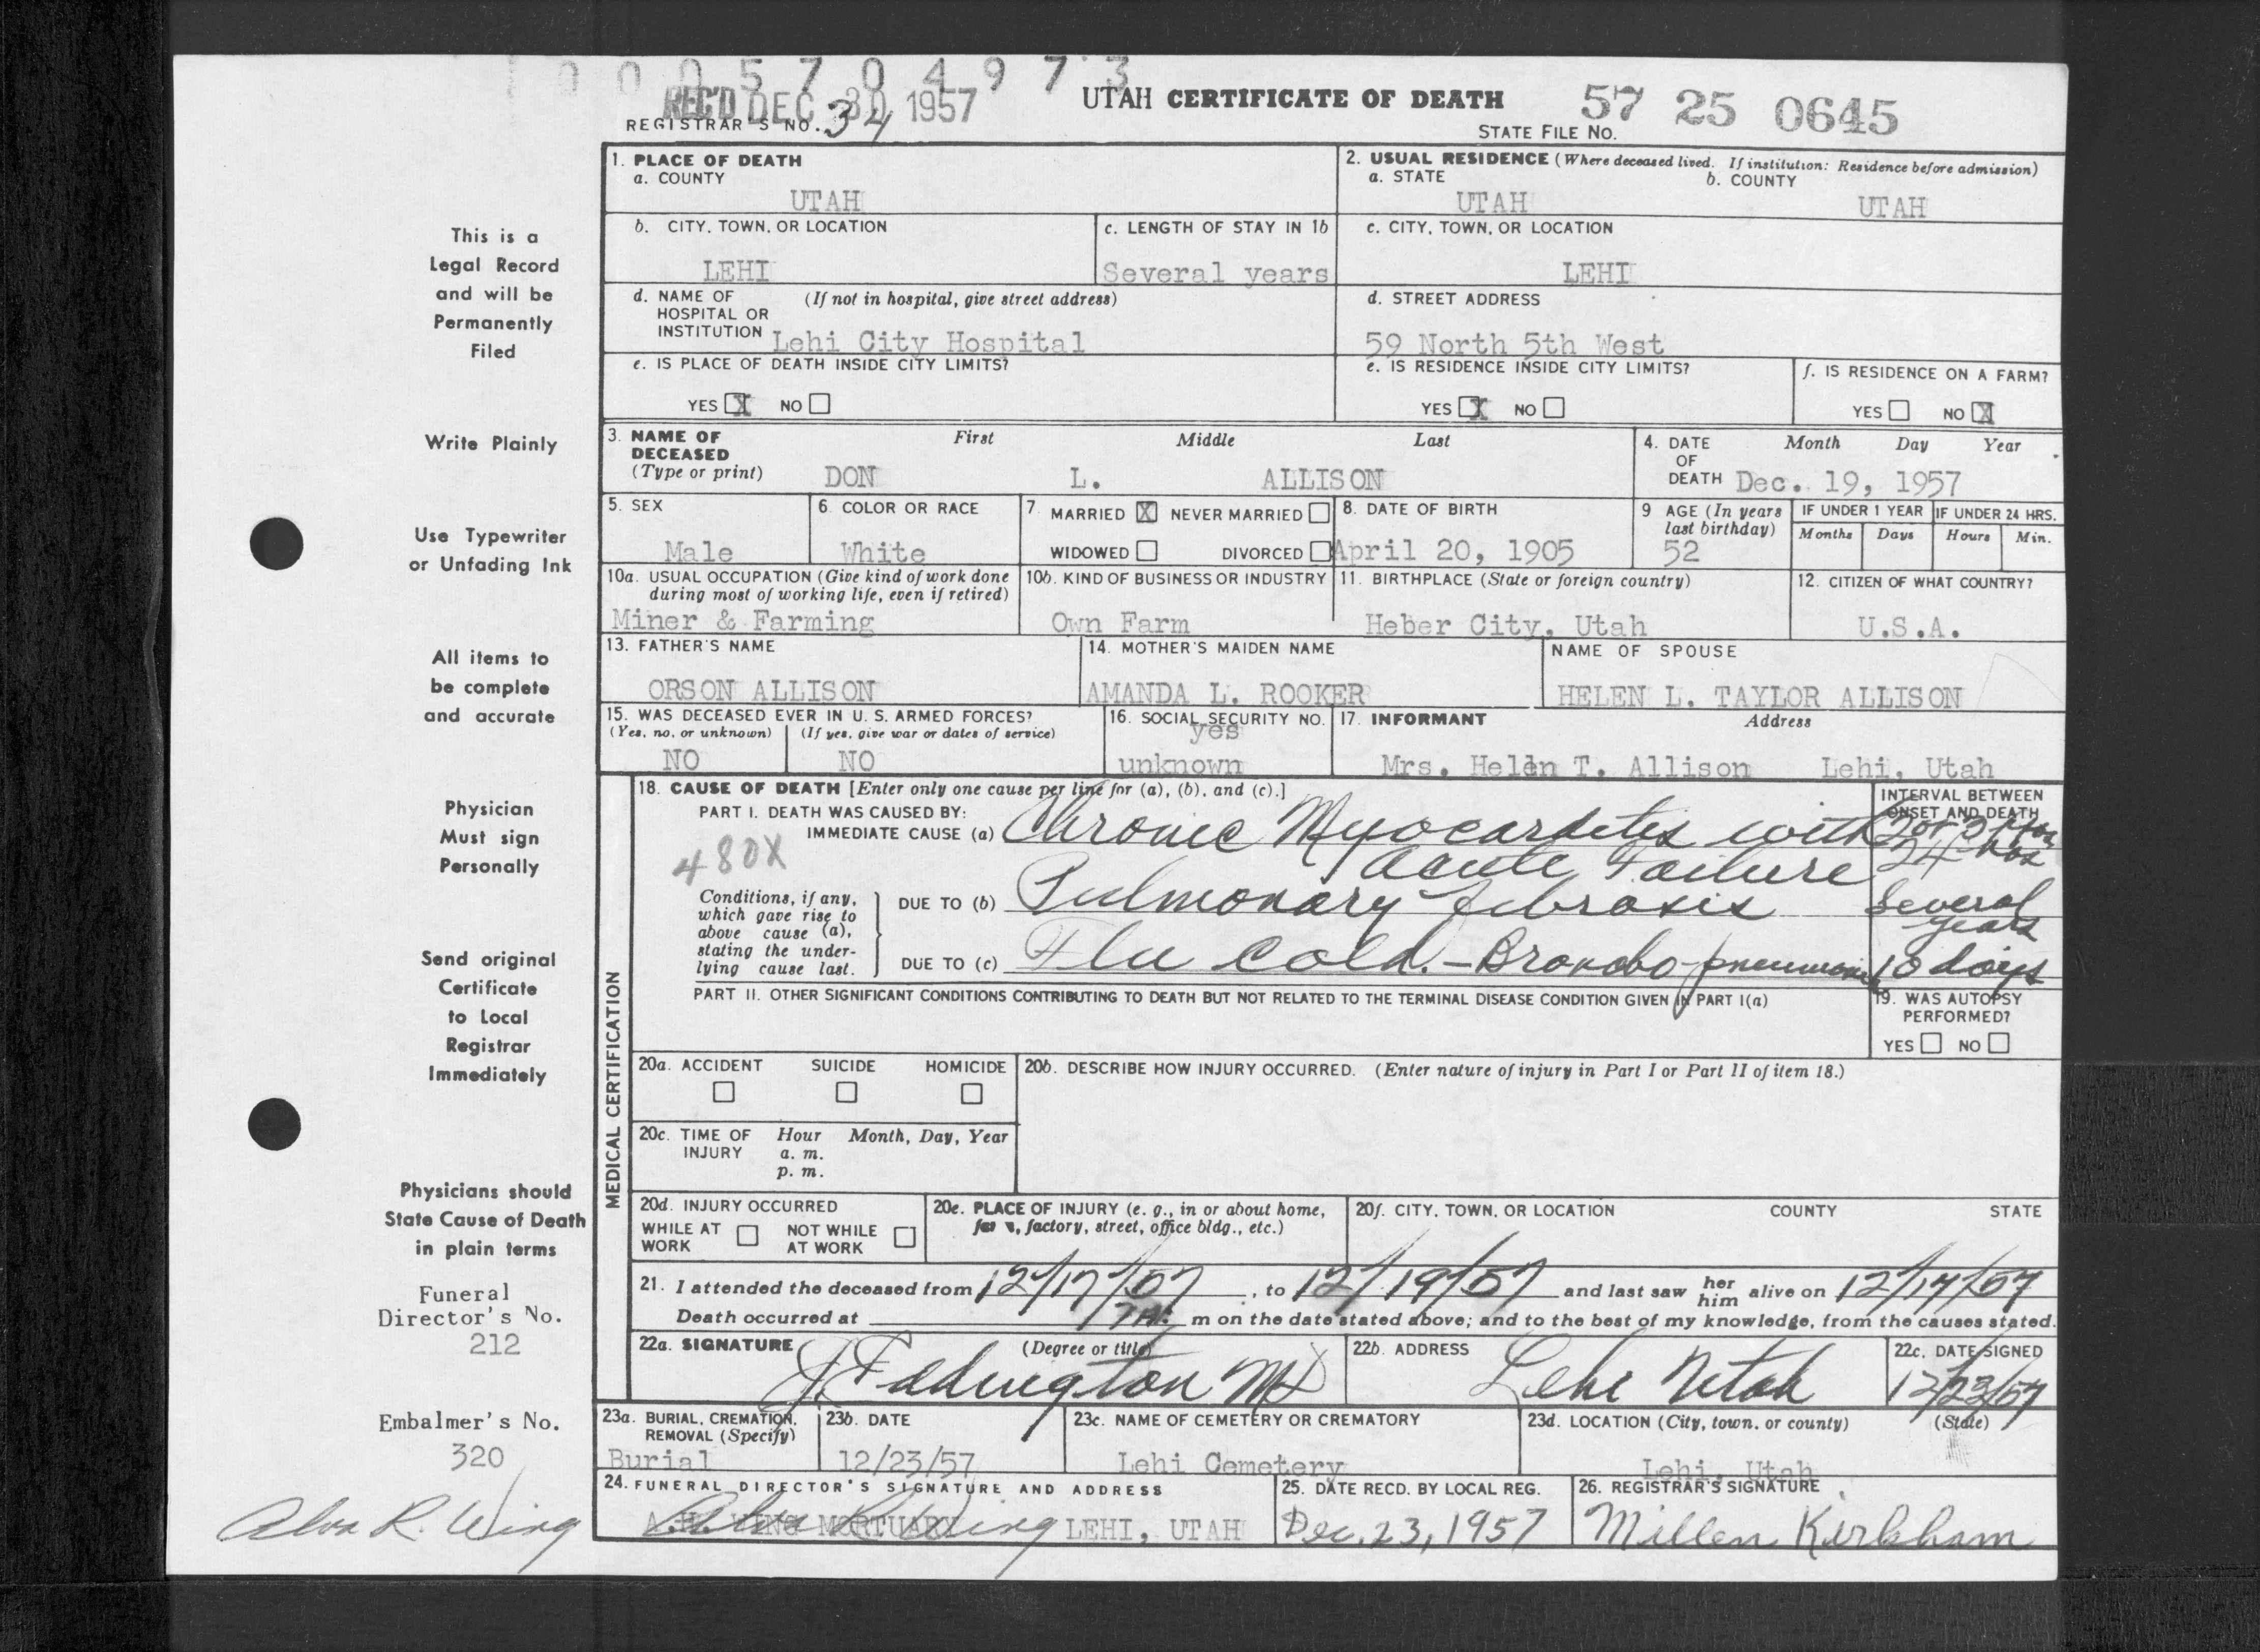 0 0 0 5 7 0 4 9 7 3
REC'D DEC 30 1957
UTAH CERTIFICATE OF DEATH
57 25 0645
REGISTRAR'S NO. 34
STATE FILE No.
1. PLACE OF DEATH
a. COUNTY
UTAH
2. USUAL RESIDENCE (Where deceased lived. If institution: Residence before admission)
a. STATE
UTAH
b. COUNTY
UTAH
b. CITY, TOWN, OR LOCATION
LEHI
c. LENGTH OF STAY IN 1b
Several years
c. CITY, TOWN, OR LOCATION
LEHI
d. NAME OF HOSPITAL OR INSTITUTION
(If not in hospital, give street address)
Lehi City Hospital
d. STREET ADDRESS
59 North 5th West
e. IS PLACE OF DEATH INSIDE CITY LIMITS?
YES X NO
e. IS RESIDENCE INSIDE CITY LIMITS?
YES X NO
f. IS RESIDENCE ON A FARM?
YES NO X
3. NAME OF DECEASED (Type or print)
First Middle Last
DON L. ALLISON
4. DATE OF DEATH
Month Day Year
Dec. 19, 1957
5. SEX
Male
6. COLOR OR RACE
White
7. MARRIED X NEVER MARRIED
WIDOWED DIVORCED
8. DATE OF BIRTH
April 20, 1905
9 AGE (In years last birthday)
52
IF UNDER 1 YEAR
Months Days
IF UNDER 24 HRS.
Hours Min.
10a. USUAL OCCUPATION (Give kind of work done during most of working life, even if retired)
Miner & Farming
10b. KIND OF BUSINESS OR INDUSTRY
Own Farm
11. BIRTHPLACE (State or foreign country)
Heber City, Utah
12. CITIZEN OF WHAT COUNTRY?
U.S.A.
13. FATHER'S NAME
ORSON ALLISON
14. MOTHER'S MAIDEN NAME
AMANDA L. ROOKER
NAME OF SPOUSE
HELEN L. TAYLOR ALLISON
15. WAS DECEASED EVER IN U. S. ARMED FORCES?
(Yes, no, or unknown) (If yes, give war or dates of service)
NO NO
16. SOCIAL SECURITY NO.
yes
unknown
17. INFORMANT Address
Mrs. Helen T. Allison Lehi, Utah
MEDICAL CERTIFICATION
18. CAUSE OF DEATH [Enter only one cause per line for (a), (b), and (c).]
PART I. DEATH WAS CAUSED BY:
IMMEDIATE CAUSE (a) Chronic Myocardites with
Acute Failure
INTERVAL BETWEEN ONSET AND DEATH
24 hrs
480X
Conditions, if any, which gave rise to above cause (a), stating the underlying cause last.
DUE TO (b) Pulmonary fibrosis
Several years
DUE TO (c) Flu Cold. - Broncho-pneumonia
10 days
PART II. OTHER SIGNIFICANT CONDITIONS CONTRIBUTING TO DEATH BUT NOT RELATED TO THE TERMINAL DISEASE CONDITION GIVEN IN PART I(a)
19. WAS AUTOPSY PERFORMED?
YES NO
20a. ACCIDENT SUICIDE HOMICIDE
20b. DESCRIBE HOW INJURY OCCURRED. (Enter nature of injury in Part I or Part II of item 18.)
20c. TIME OF INJURY Hour Month, Day, Year
a. m.
p. m.
20d. INJURY OCCURRED
WHILE AT WORK NOT WHILE AT WORK
20e. PLACE OF INJURY (e. g., in or about home, farm, factory, street, office bldg., etc.)
20f. CITY, TOWN, OR LOCATION COUNTY STATE
21. I attended the deceased from 12/17/57, to 12/19/57 and last saw her him alive on 12/19/57
Death occurred at m on the date stated above; and to the best of my knowledge, from the causes stated.
22a. SIGNATURE (Degree or title)
J. Eddington MD
22b. ADDRESS
Lehi Utah
22c. DATE SIGNED
12/23/57
23a. BURIAL, CREMATION, REMOVAL (Specify)
Burial
23b. DATE
12/23/57
23c. NAME OF CEMETERY OR CREMATORY
Lehi Cemetery
23d. LOCATION (City, town, or county) (State)
Lehi, Utah
24. FUNERAL DIRECTOR'S SIGNATURE AND ADDRESS
WING MORTUARY LEHI, UTAH
Alva R. Wing
25. DATE RECD. BY LOCAL REG.
Dec. 23, 1957
26. REGISTRAR'S SIGNATURE
Millen Kirkham
This is a
Legal Record
and will be
Permanently
Filed
Write Plainly
Use Typewriter
or Unfading Ink
All items to
be complete
and accurate
Physician
Must sign
Personally
Send original
Certificate
to Local
Registrar
Immediately
Physicians should
State Cause of Death
in plain terms
Funeral
Director's No.
212
Embalmer's No.
320
Alva R. Wing